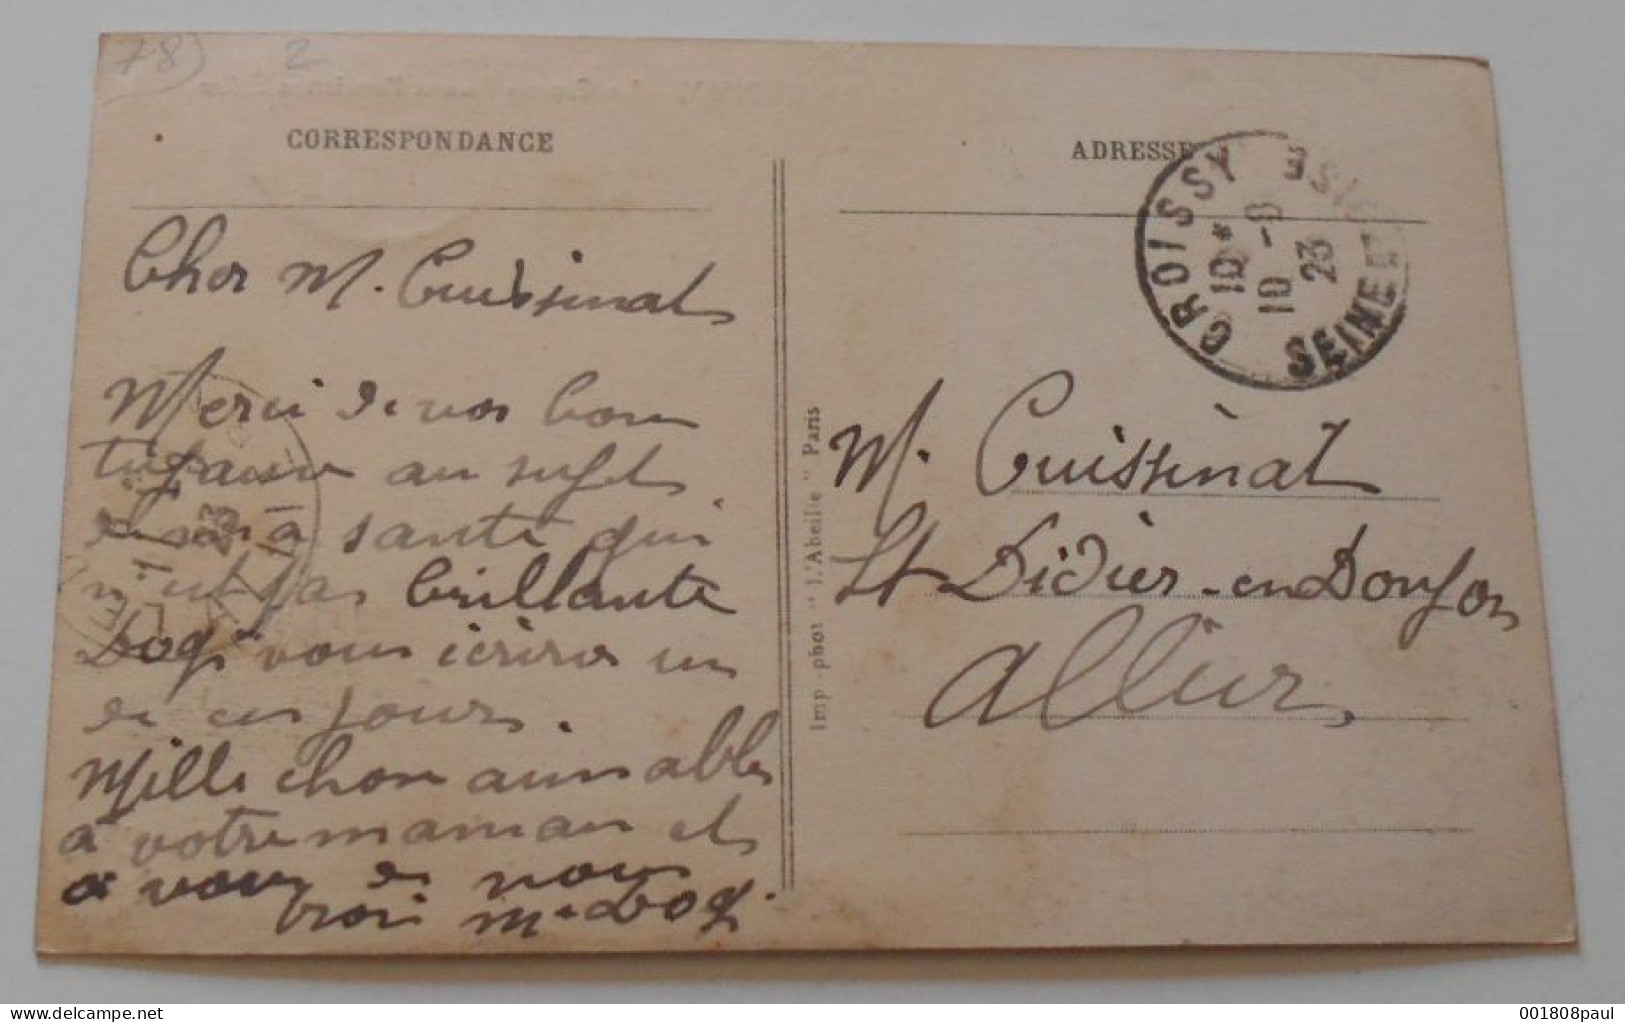 78) 2
CORRESPONDANCE
Cher M. Cuissinat
Merci de vos bons
tuyaux au sujet
de ma santé qui
n'est pas brillante
Dog. vous écrirai un
de ces jours.
Mille chose aimables
à votre maman et
a vous de nous
trois M. Dog.
Imp.-phot "L'Abeille" Paris
ADRESSE
CROISSY S SEINE
10* 10 -9 23
SEINE ET
M. Cuissinat
St Didier-en Donjon
Allier
001808paul